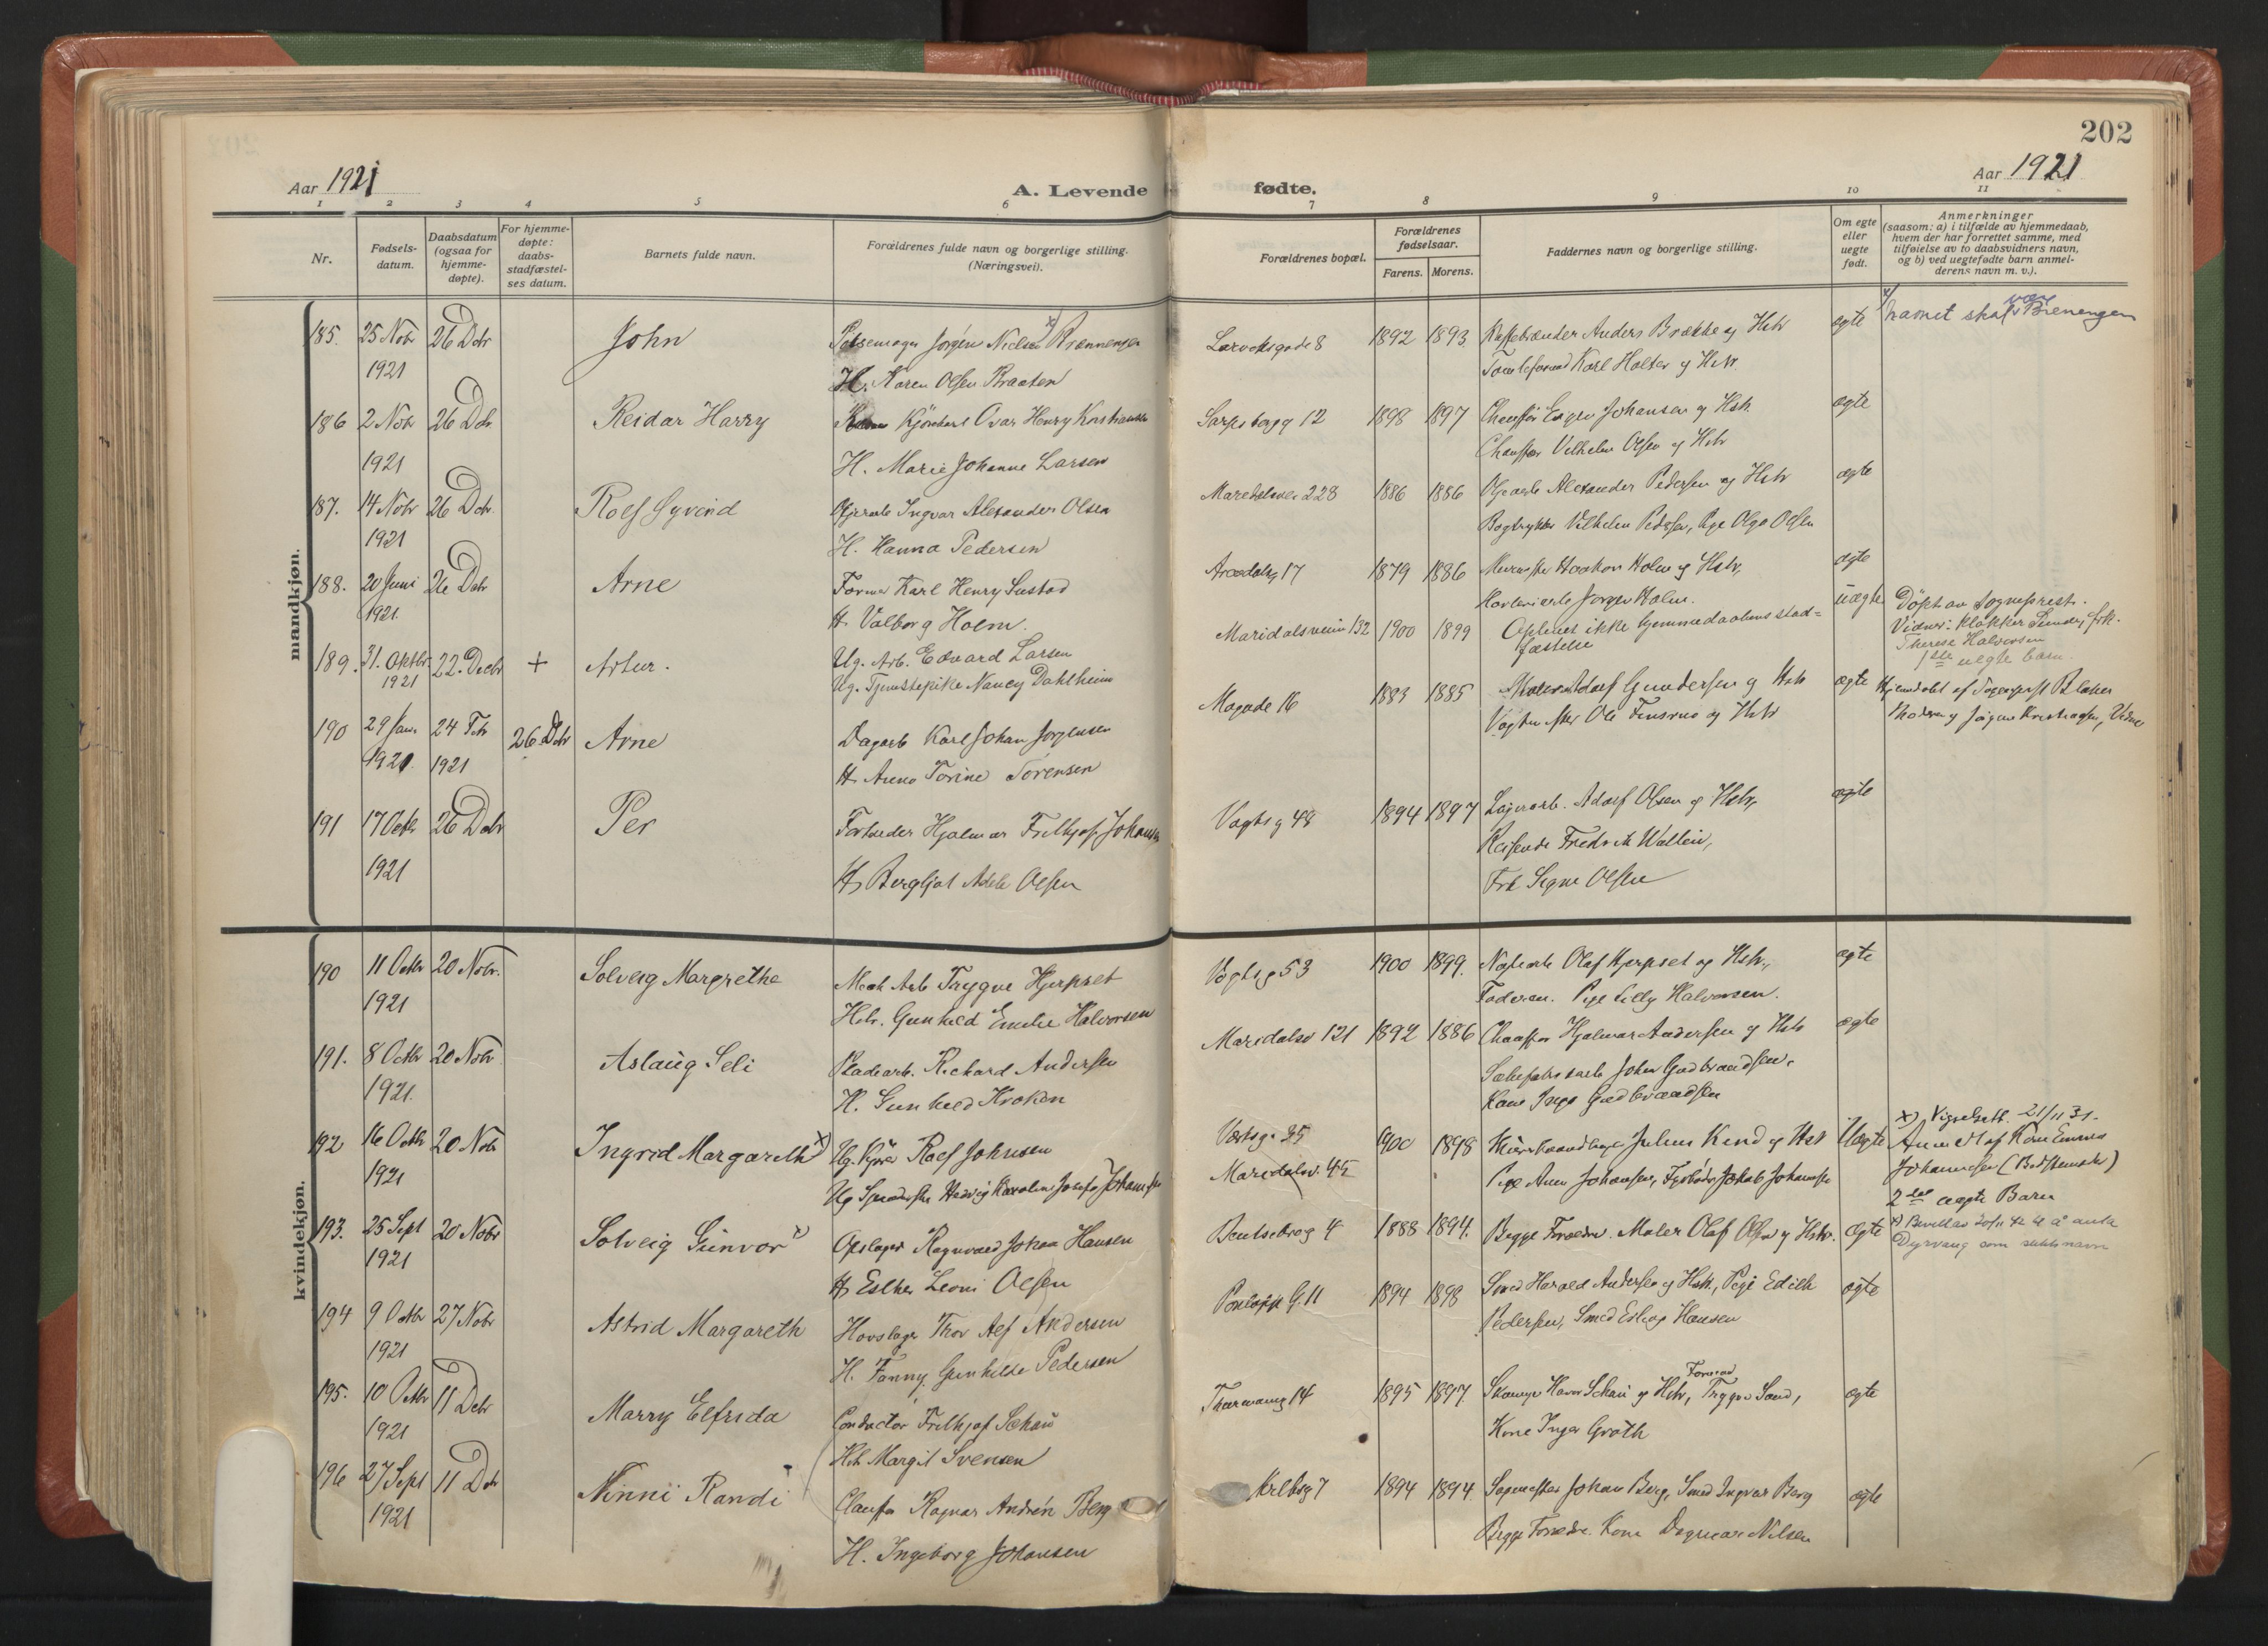 202
Aar 1921
A. Levende fødte.
Aar 1921
1 2 3 4 5 6 7 8 9 10 11
Nr.
Fødsels-datum.
Daabsdatum (ogsaa for hjemme-døpte).
For hjemme-døpte: daabs-stadfæstel-ses datum.
Barnets fulde navn.
Forældrenes fulde navn og borgerlige stilling. (Næringsvei).
Forældrenes bopæl.
Forældrenes fødselsaar.
Farens. Morens.
Faddernes navn og borgerlige stilling.
Om egte eller uegte født.
Anmerkninger
(saasom: a) i tilfælde av hjemmedaab, hvem der har forrettet samme, med tilføielse av to daabsvidners navn, og b) ved uegtefødte barn anmel-derens navn m. v.).
mandkjøn.
185. 25 Nobr 26 Dcbr John Jörgen Nielsen Brænnengen 8 1892 1893 Anders Brække og Hstr ægte navnet skal være Brenengen
1921 H. Karen Olsen Braaten Karl Holter og Hstr.
186 2 Nobr 26 Dcbr Reidar Harry Henry Kristiansen Sarpsborgg 12 1898 1897 Chauffør Johansen og Hstr. ægte
1921 H. Marie Johanne Larsen Chauffør Vilhelm Olsen og Hstr
187. 14 Nobr 26 Dcbr. Rolf Eyvind Ingvar Alexander Olsen Maridalsvei 228 1886 1886 Alexander Pedersen og Hstr ægte
1921 H. Hanna Pedersen Bogtrykker Vilhelm Pedersen, Pige Olga Olsen
188. 20 Juni 26 Dcbr Arne Former Karl Henry Sustad Arendalsg 17 1879 1886 Haakon Holm og Hstr, ægte
1921. H. Valborg Holm. Jørgen Holm.
189. 31. Oktbr. 22. Decbr + Artur. Ug. Arb. Edvard Larsen Maridalsveien 132 1900 1899 Opläst ikke hjemmedaabens stad= uægte Döpt av sogneprest.
1921 Ug. Tjenestepike Nancy Dahlheim fæstelse Vidner: klokker Sunde, frk.
Therese Halvorsen
1ste uegte barn.
190 29 Jan. 24 Febr 26 Dcbr Arne Dagarb Karl Johan Jørgensen Magade 16 1883 1885 Adolf Gundersen og Hstr ægte Hjemdøbt af Sogneprest
1921. 1921 H. Anna Torine Sørensen Ole Finsrud og Hstr Moderen og Kristiansen, Vidner
191 17 Octb 26 Dcbr Per Hjalmar Fridtjof Johansen Vogtsg 48 1894 1897 Lagerarb. Adolf Olsen og Hstr, ægte
1921 H. Bergljot Adele Olsen Reisende Fredrik Wallin,
Frk Signe Olsen
kvindekjøn.
190 11 Octbr 20 Nobr. Solveig Margrethe Mek Arb Trygve Hjerpset Vogtsg 53 1900 1899. Olaf Hjerpset og Hstr, ægte
1921 Hstr. Gunhild Emilie Halvorsen Faderen. Pige Lilly Halvorsen.
191. 8 Octbr 20 Nobr Aslaug Seli Pladearb. Richard Andersen Maridalsv 121 1892 1886 Chauffør Hjalmar Andersen og Hstr ægte
1921. H. Gunhild Kroken Johan Gudbrandsen,
Kone Inga Gudbrandsen
192 16 Octbr 20 Nobr Ingrid Margareth x) Ug. Rolf Johnsen 35 1900 1898 Julius Kind og Hstr Uægte x) 21/11 31.
1921 Ug Hedvig Karoline Josefa Johansen Maridalsv. 45 Pige Anna Johansen, Jakob Johansen Anmeldt af Kone Emma
Johannesen (Bedstemoder)
2det uægte Barn
193. 25 Sept 20 Nobr Solveig Gunvor x) Opslager Ragnvald Johan Hansen Bentsebrog 4 1888 1894. Begge Forældre. Maler Olaf Olsen og Hstr. Ægte x) Bevill av 20/11 42 til å anta
1921 H Esther Leoni Olsen Dyrvang som slektsnavn
194 9 Octbr 27 Nobr Astrid Margareth Hovslager Thor Alf Andersen G. 11 1894 1898 Smed Harald Andersen og Hstr, Pige Edith ægte
1921 H. Fanny Gunhilde Pedersen Pedersen, Smed Hansen
195. 10 Octbr 11 Dcbr Marry Elfrida Conductør Fridtjof Schau 14 1895 1897. Schau og Hstr, Formand Trygve Sand, ægte
1921 Hst Margit Svensen Kone Inga Groth
196 27 Sept 11 Dcbr Ninni Randi Chauffør Ragnar Andrén Berg 7 1894 1894. Johan Berg, Smed Ingvar Berg ægte
1921 H. Ingeborg Johansen Begge Forældre. Kone Dagmar Nilsen